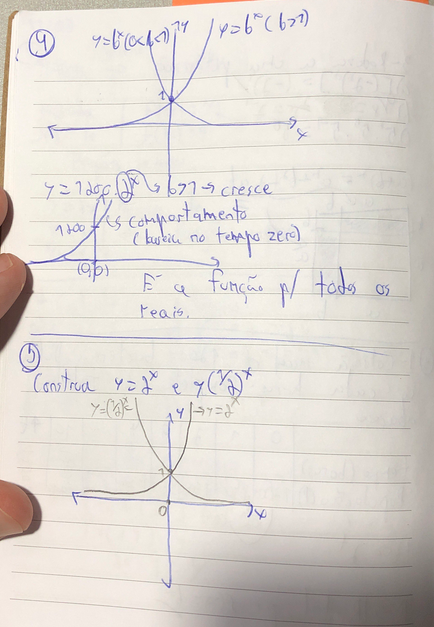 4)
y=b^x(0<b<1) y y=b^x(b>1)
1
x
y=1200.2^x → b>1 → cresce
1200 ↳ comportamento
(baseia no tempo zero)
(0,0)
É a função p/ todos os
reais.
5)
Construa y=2^x e y(1/2)^x
y=(1/2)^x y → y=2^x
1
0 x